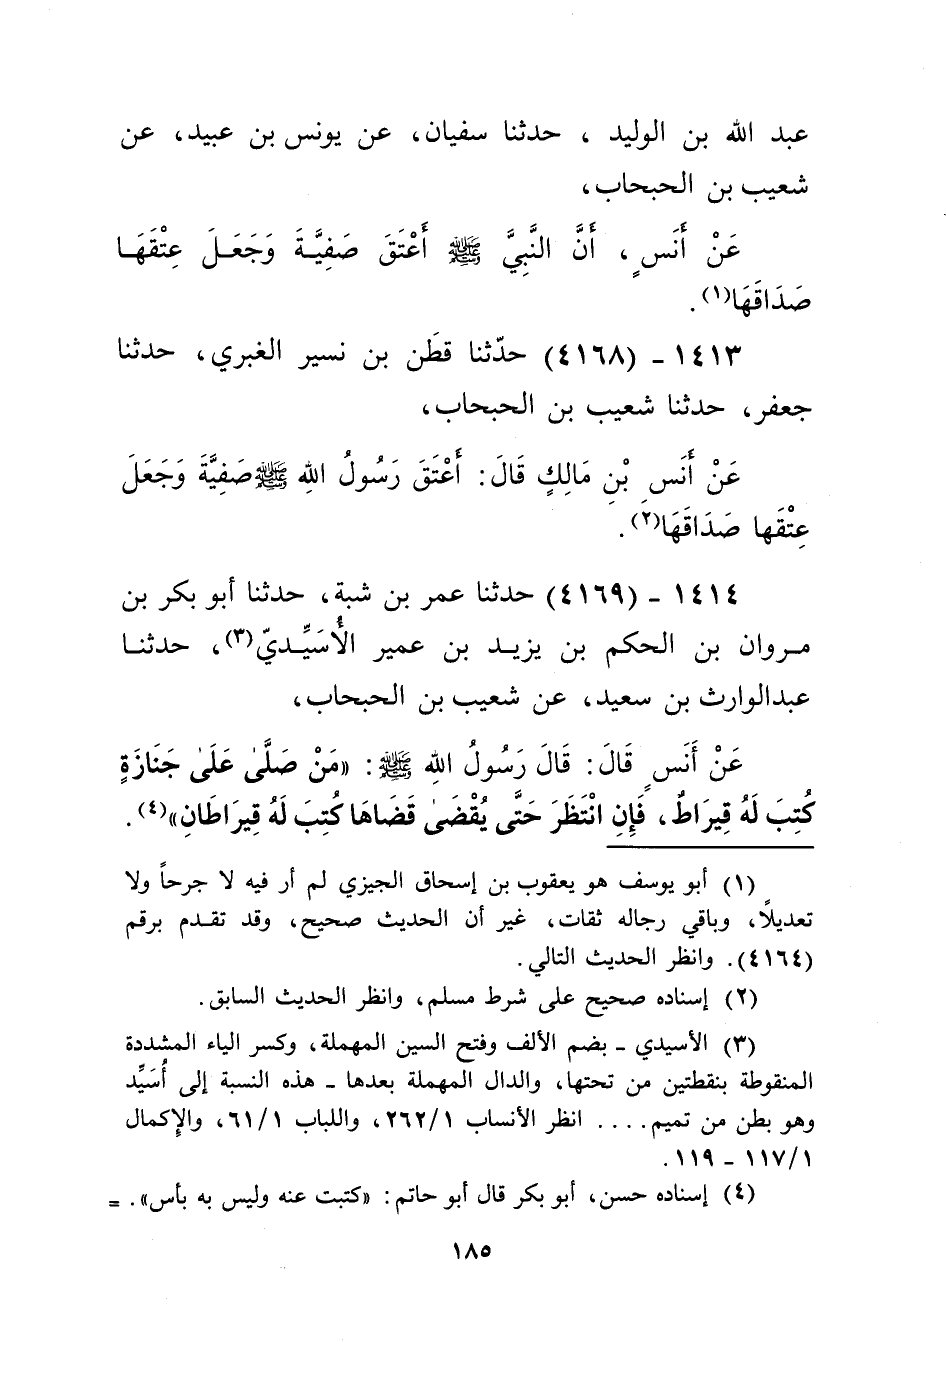 عبد الله بن الوليد ، حدثنا سفيان، عن يونس بن عبيد، عن
شعيب بن الحبحاب،
عَنْ أَنَسٍ، أَنَّ النَّبِيَّ ﷺ أَعْتَقَ صَفِيَّةَ وَجَعَلَ عِتْقَهَا
صَدَاقَهَا(١).
١٤١٣ - (٤١٦٨) حدّثنا قطَن بن نسير الغبري، حدثنا
جعفر، حدثنا شعيب بن الحبحاب،
عَنْ أَنَسِ بْنِ مَالِكٍ قَالَ: أَعْتَقَ رَسُولُ اللهِ ﷺ صَفِيَّةَ وَجَعَلَ
عِتْقَها صَدَاقَهَا(٢).
١٤١٤ - (٤١٦٩) حدثنا عمر بن شبة، حدثنا أبو بكر بن
مروان بن الحكم بن يزيد بن عمير الأُسَيِّديّ(٣)، حدثنا
عبدالوارث بن سعيد، عن شعيب بن الحبحاب،
عَنْ أَنَسٍ قَالَ: قَالَ رَسُولُ اللهِ ﷺ: «مَنْ صَلَّىٰ عَلَىٰ جَنَازَةٍ
كُتِبَ لَهُ قِيرَاطٌ، فَإِنِ انْتَظَرَ حَتَّى يُقْضَىٰ قَضَاهَا كُتِبَ لَهُ قِيرَاطَانِ»(٤).
(١) أبو يوسف هو يعقوب بن إسحاق الجيزي لم أر فيه لا جرحاً ولا
تعديلاً، وباقي رجاله ثقات، غير أن الحديث صحيح، وقد تقدم برقم
(٤١٦٤). وانظر الحديث التالي.
(٢) إسناده صحيح على شرط مسلم، وانظر الحديث السابق.
(٣) الأسيدي - بضم الألف وفتح السين المهملة، وكسر الياء المشددة
المنقوطة بنقطتين من تحتها، والدال المهملة بعدها - هذه النسبة إلى أُسَيِّد
وهو بطن من تميم.... انظر الأنساب ٢٦٢/١، واللباب ٦١/١، والإكمال
١١٧/١ - ١١٩.
(٤) إسناده حسن، أبو بكر قال أبو حاتم: «كتبت عنه وليس به بأس». =
١٨٥